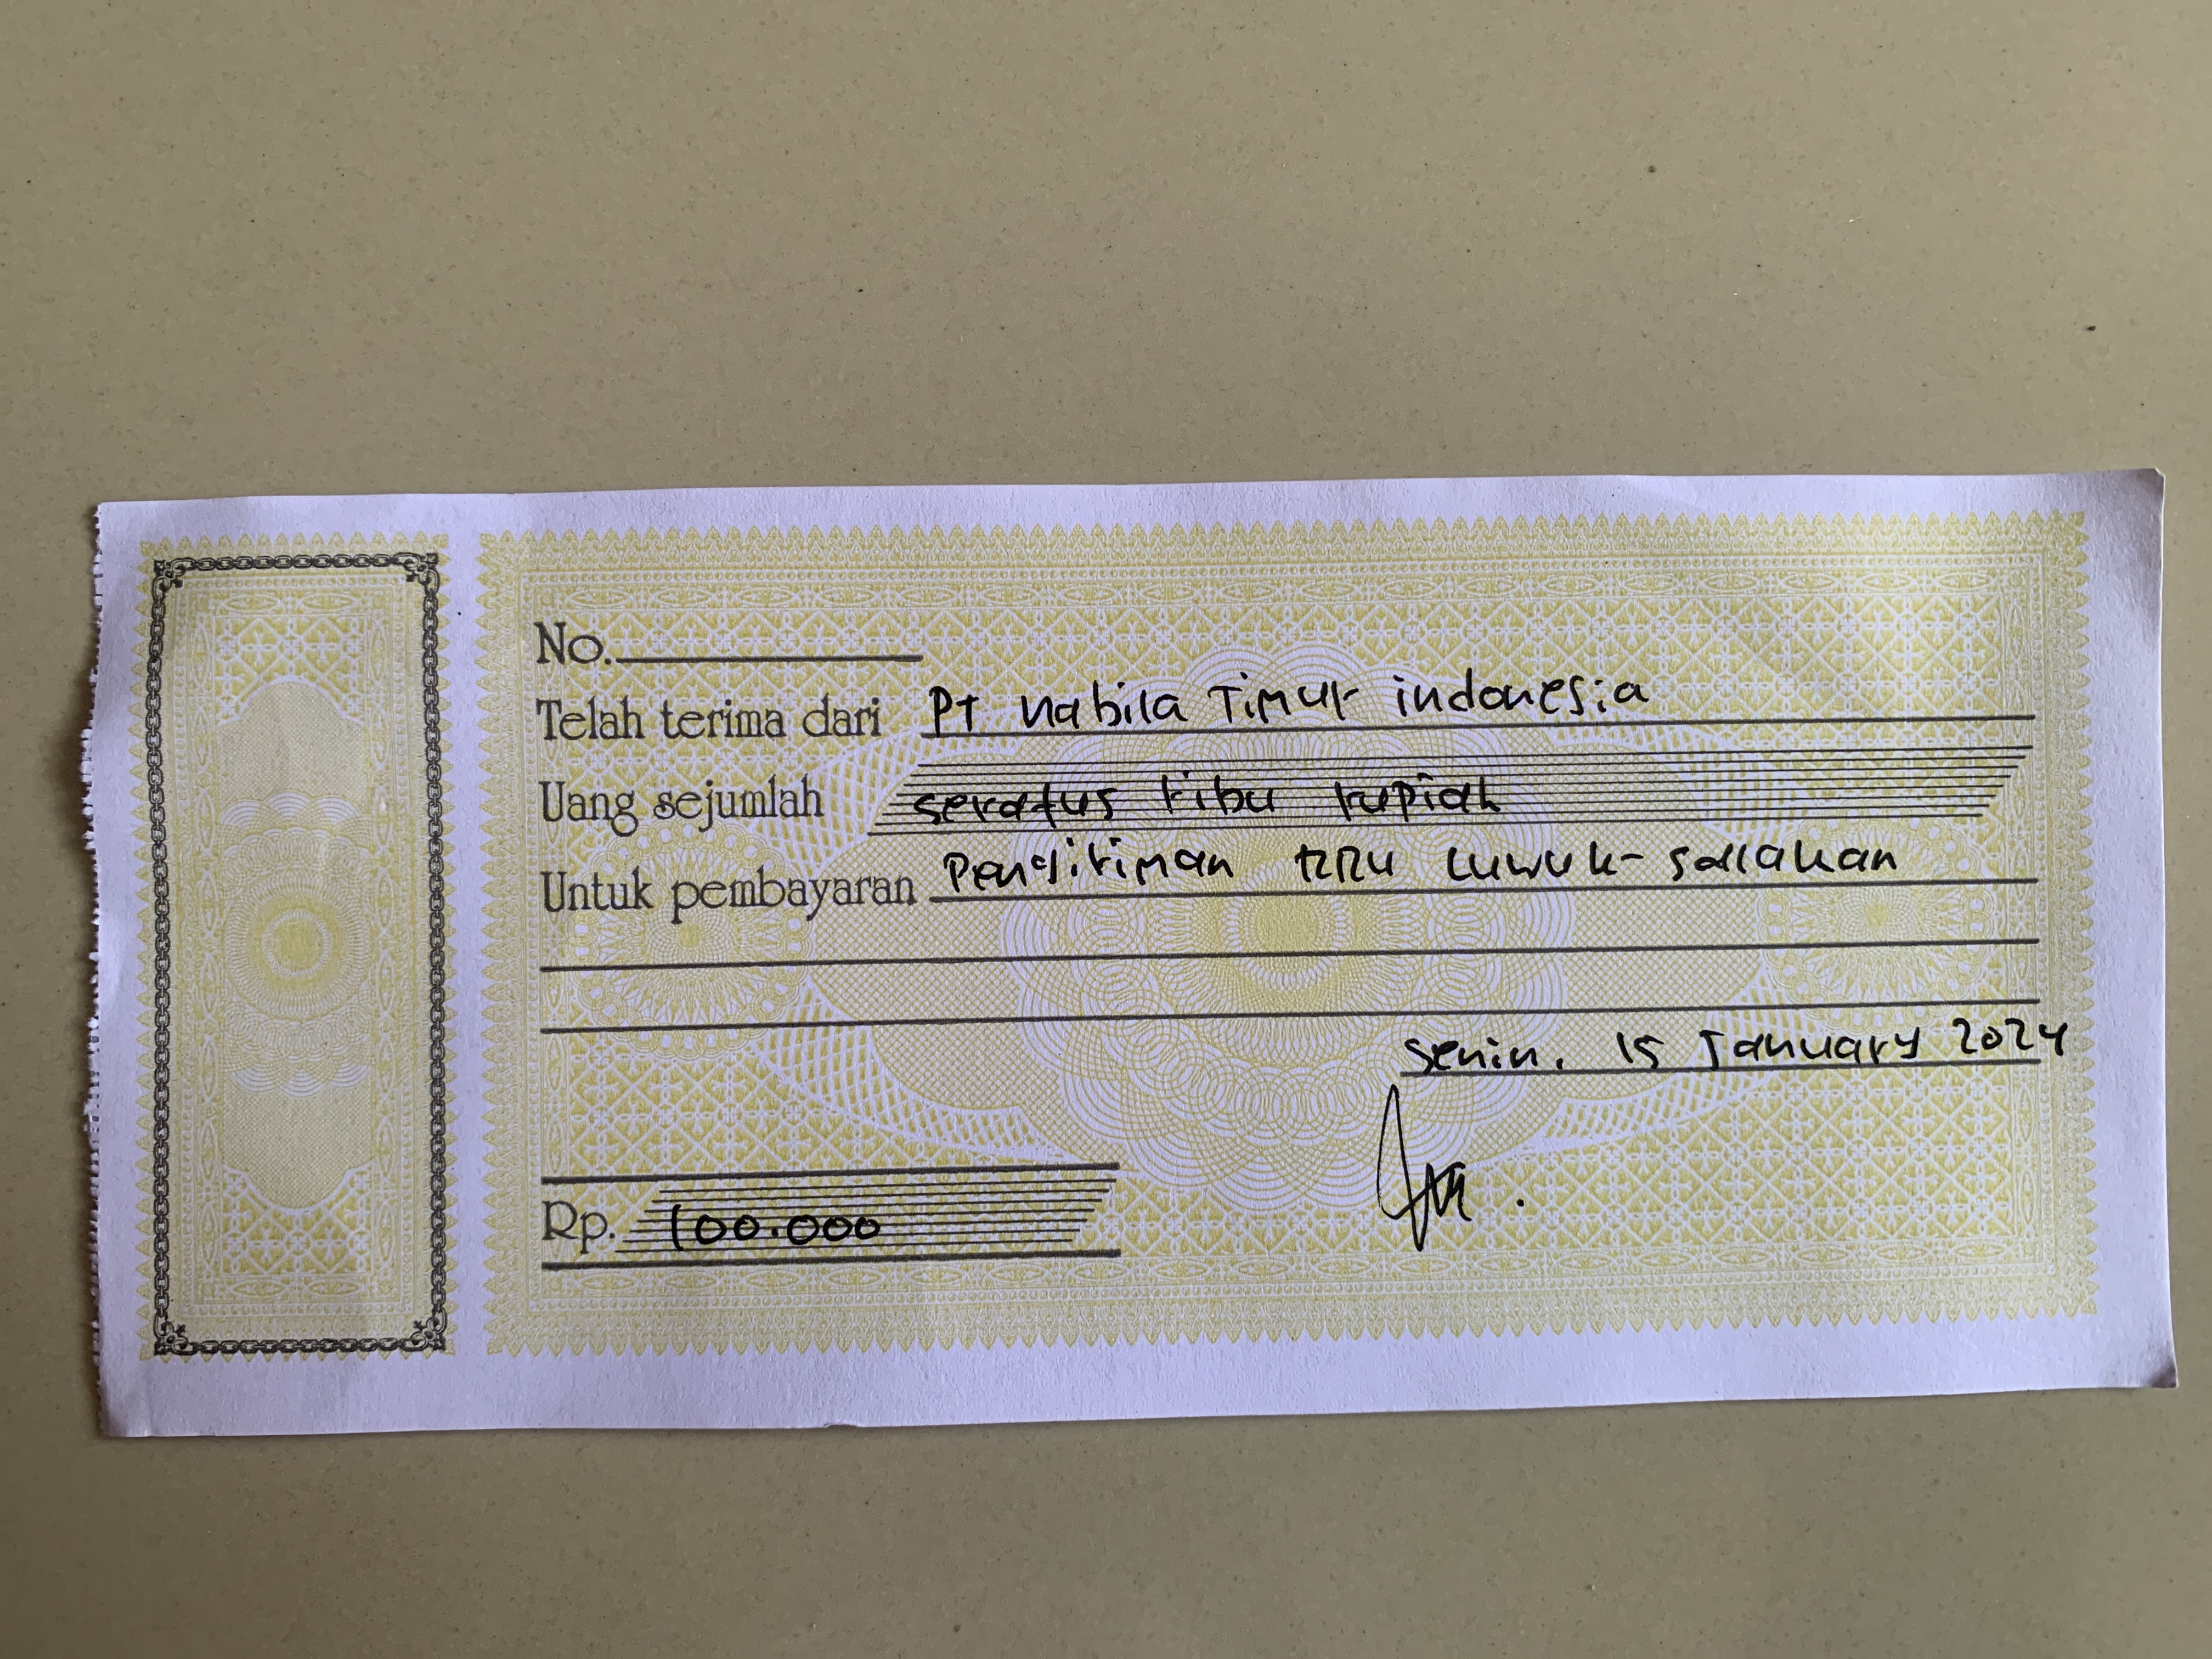 No.
Telah terima dari PT Nabila Timur indonesia
Uang sejumlah seratus ribu rupiah
Untuk pembayaran Pengiriman Luwuk - Salakan
Senin, 15 January 2024
Rp. 100.000